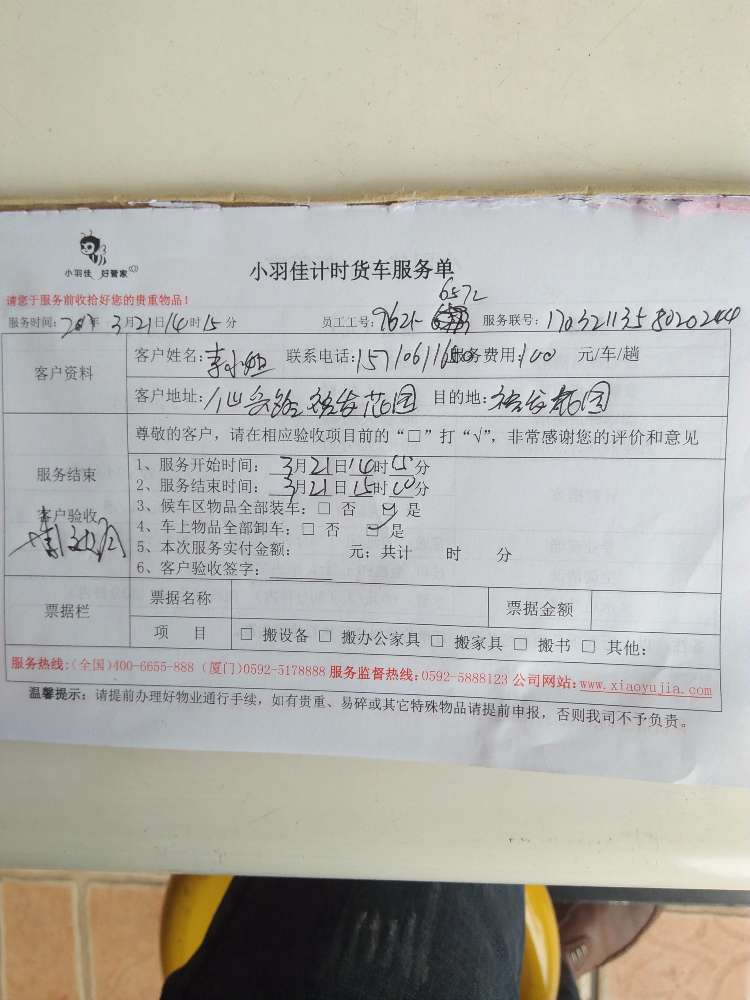 小羽佳 好管家
小羽佳计时货车服务单
请您于服务前收拾好您的贵重物品!
6572
服务时间: 2017年 3月21日14时15分 员工工号: 9621- 服务联号: 17032113580202444
客户资料
客户姓名: 李小姐 联系电话: 服务费用: 100 元/车/趟
客户地址: 裕发花园 目的地: 裕发花园
尊敬的客户,请在相应验收项目前的“□”打“√”,非常感谢您的评价和意见
服务结束
客户验收
1、服务开始时间: 3月21日14时15分
2、服务结束时间: 3月21日15时00分
3、候车区物品全部装车: □ 否 ☑ 是
4、车上物品全部卸车: □ 否 ☑ 是
5、本次服务实付金额: 元; 共计 时 分
6、客户验收签字:
票据栏
票据名称 票据金额
项 目 □ 搬设备 □ 搬办公家具 □ 搬家具 □ 搬书 □ 其他:
服务热线:(全国)400-6655-888 (厦门)0592-5178888 服务监督热线:0592-5888123 公司网站:www.xiaoyujia.com
温馨提示: 请提前办理好物业通行手续,如有贵重、易碎或其它特殊物品请提前申报,否则我司不予负责。